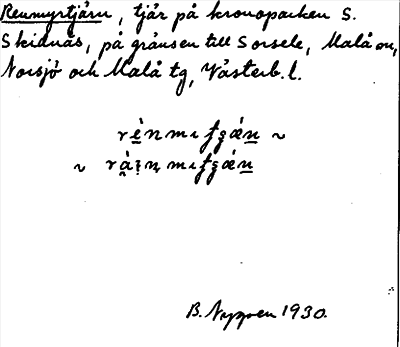 Renmyrtjärn, tjär på kronoparken S.
Skidnäs, på gränsen till Sorsele, Malå sn,
Norsjö och Malå tg, Västerb. l.
B. Nygren 1930.